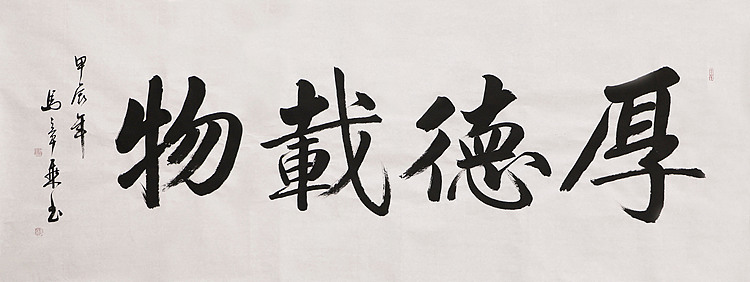 厚德載物
甲辰年
馬章乘書